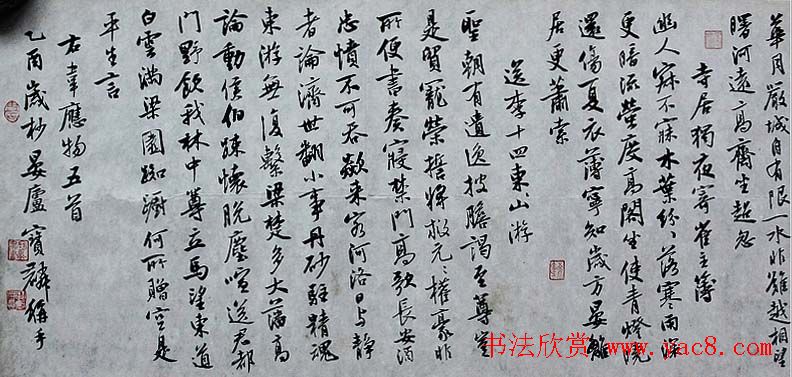 華月嚴城自有限一水非難越相望
曙河遠高齋坐超忽
寺居獨夜寄崔主簿
幽人寂不寐木葉紛〻落寒雨深
更暗流螢度高閣坐使青燈曉
還傷夏衣薄寧知歲方晏離
居更蕭索
送李十四東山游
聖朝有遺逸披膽謁至尊豈
是貿寵榮誓將救元〻權豪非
所便書奏寢禁門高歌長安酒
忠憤不可吞欻来客河洛日与靜
者論濟世翻小事丹砂駐精魂
東游無復繫梁楚多大藩高
論動侯伯疎懷脫塵喧送君都
門野飲我林中尊立馬望東道
白雲滿梁園踟躕何所贈空是
平生言
右韋應物五首
乙酉歲杪晏廬寶麟練手
书法欣赏 www.yac8.com